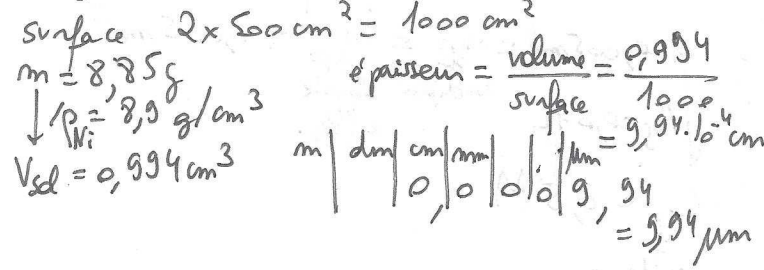 surface 2 x 500 cm² = 1000 cm²
m = 8,85 g
↓ ρNi = 8,9 g/cm³
Vsd = 0,994 cm³
épaisseur = volume/surface = 0,994/1000
= 9,94.10⁻⁴ cm
m | dm | cm | mm | . | . | μm
0, | 0 | 0 | 0 | 9, 94
= 9,94 μm